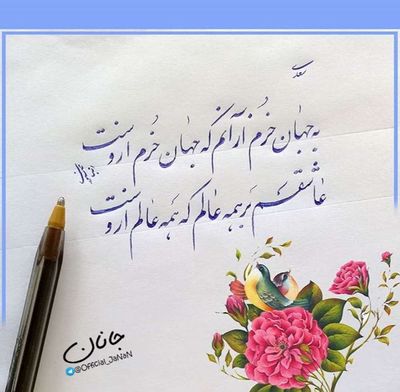 سعدی
به جهان خرم از آنم که جهان خرم ازوست
عاشقم بر همه عالم که همه عالم ازوست
جانان
@Official_JaNaN